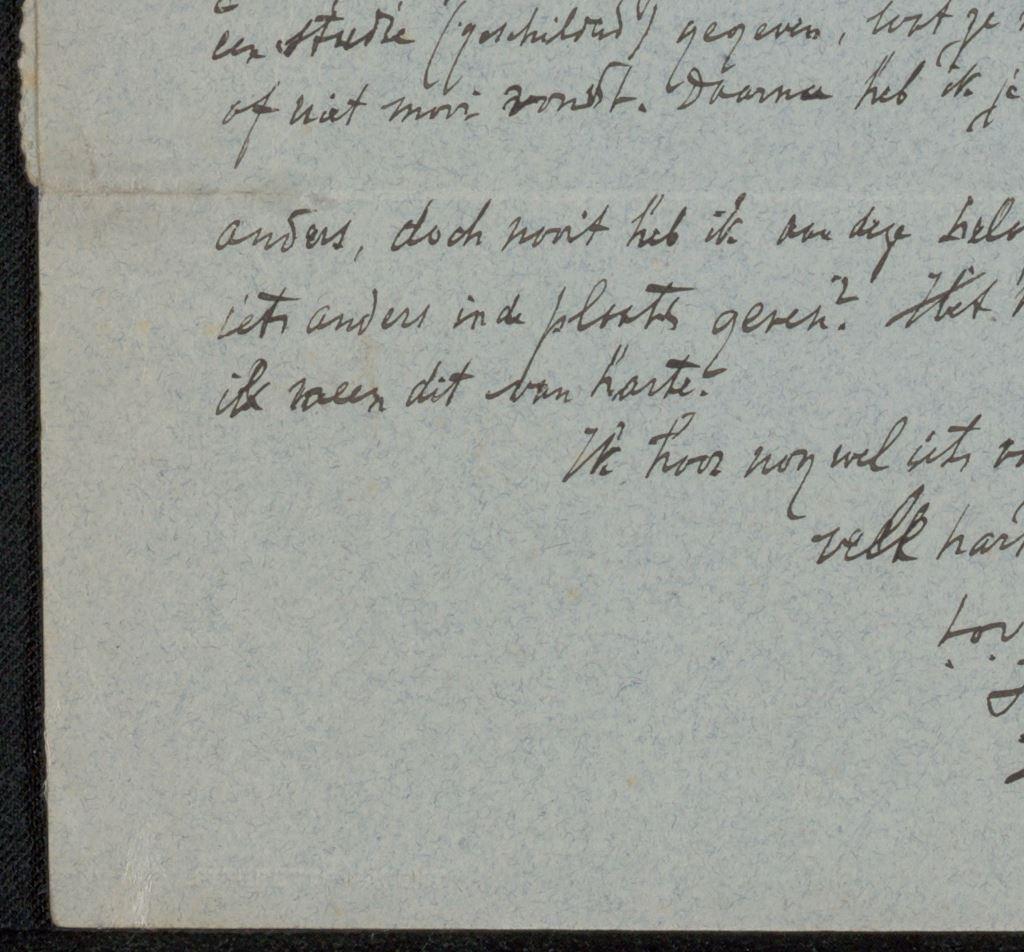 een studie (geschilderd) gegeven, wat je
of niet mooi vondt. Daarna heb ik je
anders, doch nooit heb ik aan deze belo
iets anders in de plaats geven? Het
ik meen dit van harte.
Ik hoor nog wel iets va
velk hart